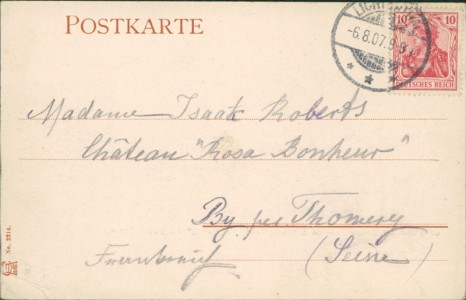 POSTKARTE
-6.8.07.9-
10 10
DEUTSCHES REICH
Madame Isaak Roberts
Château "Rosa Bonheur"
By per Thomery
Frankreich (Seine)
No. 2214.